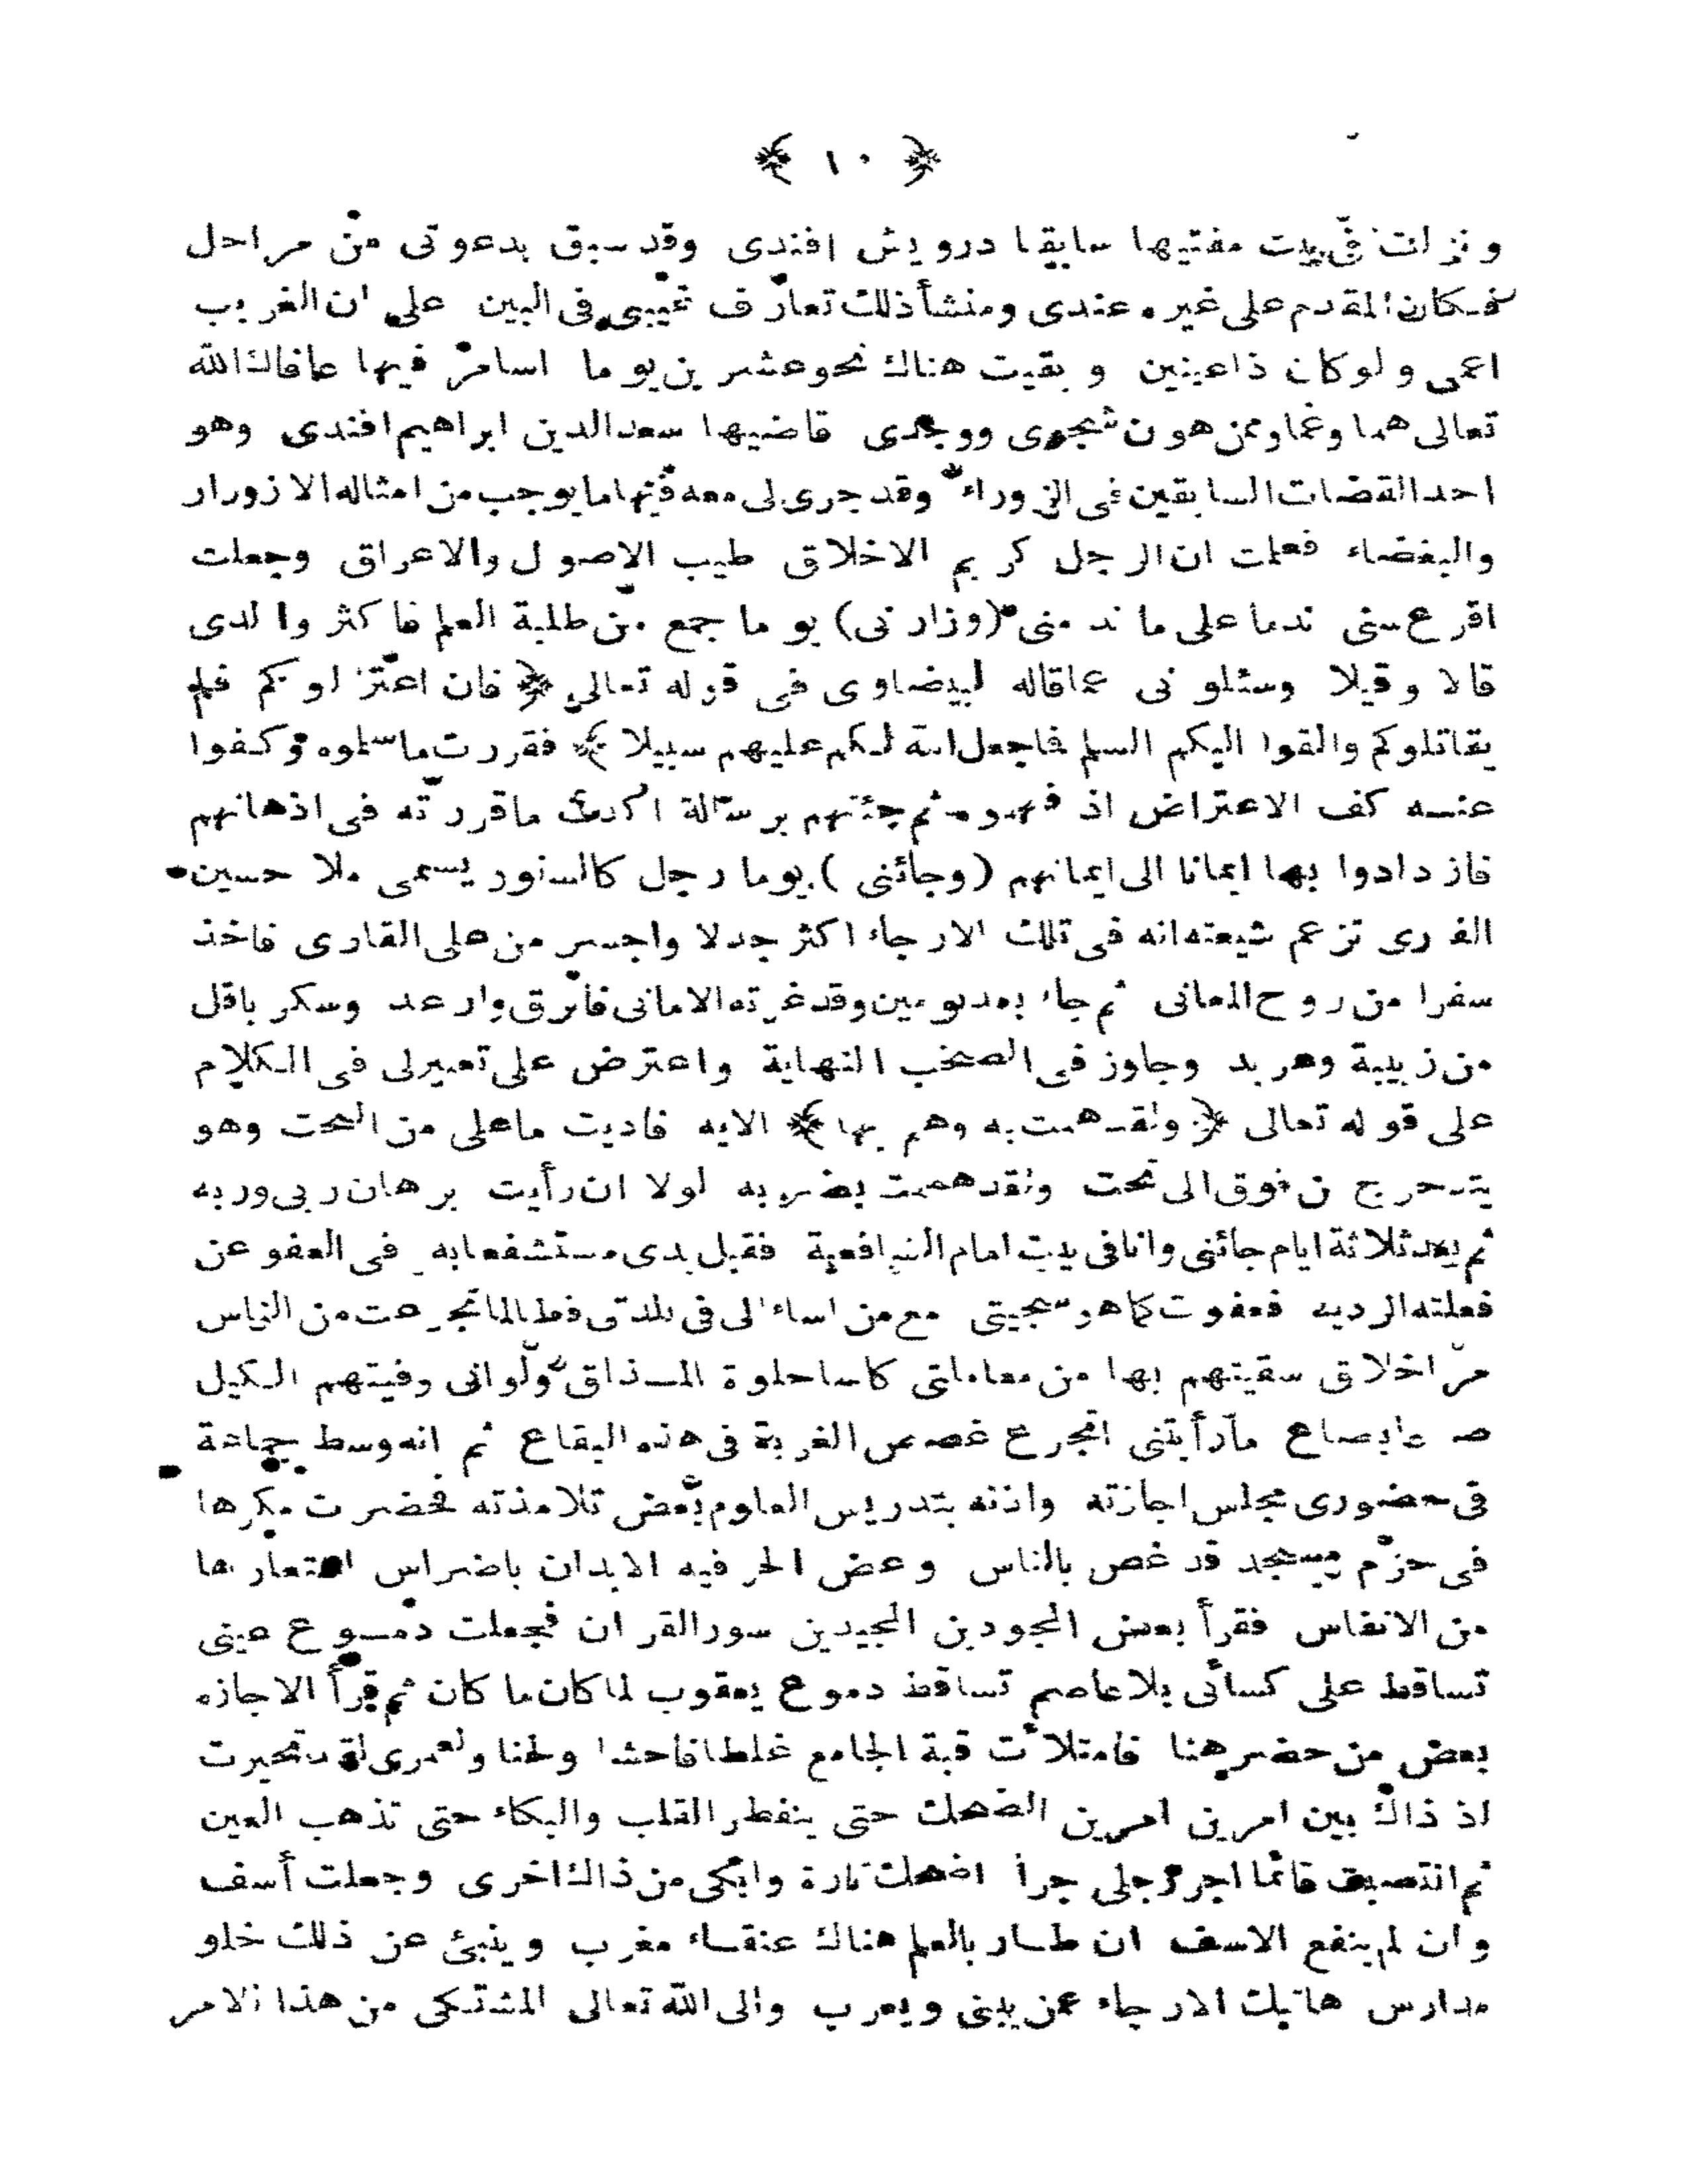 ﴿ ١٠ ﴾
ونزلت فى بيت مفتيها سابقا درويش افندى وقد سبق بدعوتى من مراحل
فكان المقدم على غيره عندى ومنشأ ذلك تعارف غيبى فى البين على ان الغريب
اعمى ولو كان ذا عينين وبقيت هناك نحو عشرين يوما اسامر فيها عافاك الله
تعالى هما وغما وممن هون شجوى ووجدى قاضيها سعد الدين ابراهيم افندى وهو
احد القضات السابقين فى الزوراء وقد جرى لى معه فيها ما يوجب من امثاله الازورار
والبغضاء فعلمت ان الرجل كريم الاخلاق طيب الاصول والاعراق وجعلت
اقرع سنى ندما على ما ند منى (وزارنى) يوما جمع من طلبة العلم فاكثروا لدى
قالا وقيلا وسئلونى عما قاله البيضاوى فى قوله تعالى ﴿ فان اعتزلوكم فلم
يقاتلوكم والقوا اليكم السلم فما جعل الله لكم عليهم سبيلا ﴾ فقررت ما سلموه وكفوا
عنه كف الاعتراض اذ فهموه ثم جئتهم برسالة اكدت ما قررته فى اذهانهم
فازدادوا بها ايمانا الى ايمانهم (وجائنى) يوما رجل كالسنور يسمى ملا حسين
الفرى تزعم شيعته انه فى تلك الارجاء اكثر جدلا واجسر من على القارى فاخذ
سفرا من روح المعانى ثم جاء بعد يومين وقد غرته الامانى فابرق وارعد وسكر باقل
من زبيبة وعربد وجاوز فى الصخب النهاية واعترض على تعبير لى فى الكلام
على قوله تعالى ﴿ ولقد همت به وهم بها ﴾ الايه فاديت ما على من البحث وهو
يتدحرج من فوق الى تحت ولقد هممت بضربه لولا ان رأيت برهان ربى وربه
ثم بعد ثلاثة ايام جائنى وانا فى بيت امام الشافعية فقبل يدى مستشفعا به فى العفو عن
فعلته الرديه فعفوت كما هو سجيتى مع من اساء الى فى بلدتى فطالما تجرعت من الناس
مر اخلاق سقيتهم بها من معاملتى كاسا حلوة المذاق ولو انى وفيتهم الكيل
صاعا بصاع ما رأيتنى اتجرع غصص الغربة فى هذه البقاع ثم انه وسط جماعة
فى حضورى مجلس اجازته واذنه بتدريس العلوم بعض تلامذته فحضرت مكرها
فى حرم مسجد قد غص بالناس وعض الحر فيه الابدان باضراس استعارها
من الانفاس فقرأ بعض المجودين المجيدين سور القران فجعلت دموع عينى
تساقط على كسائى بلا عاصم تساقط دموع يعقوب لما كان ما كان ثم قرأ الاجازه
بعض من حضر هنا فامتلأت قبة الجامع غلطا فاحشا ولحنا ولعمرى لقد تحيرت
اذ ذاك بين امرين امرين الضحك حتى ينفطر القلب والبكاء حتى تذهب العين
ثم انتصبت قائما اجر رجلى جرا اضحك تارة وابكى من ذاك اخرى وجعلت أسف
وان لم ينفع الاسف ان طار بالعلم هناك عنقاء مغرب وينبئ عن ذلك خلو
مدارس هاتيك الارجاء عمن يبنى ويعرب والى الله تعالى المشتكى من هذا الامر